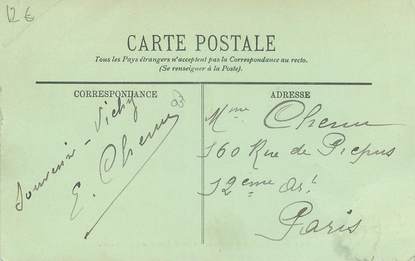 12 €
CARTE POSTALE
Tous les Pays étrangers n'acceptent pas la Correspondance au recto.
(Se renseigner à la Poste).
CORRESPONDANCE
Souvenir - Vichy
E. Chenu
ADRESSE
Mme Chenu
160 Rue de Picpus
12eme Art
Paris